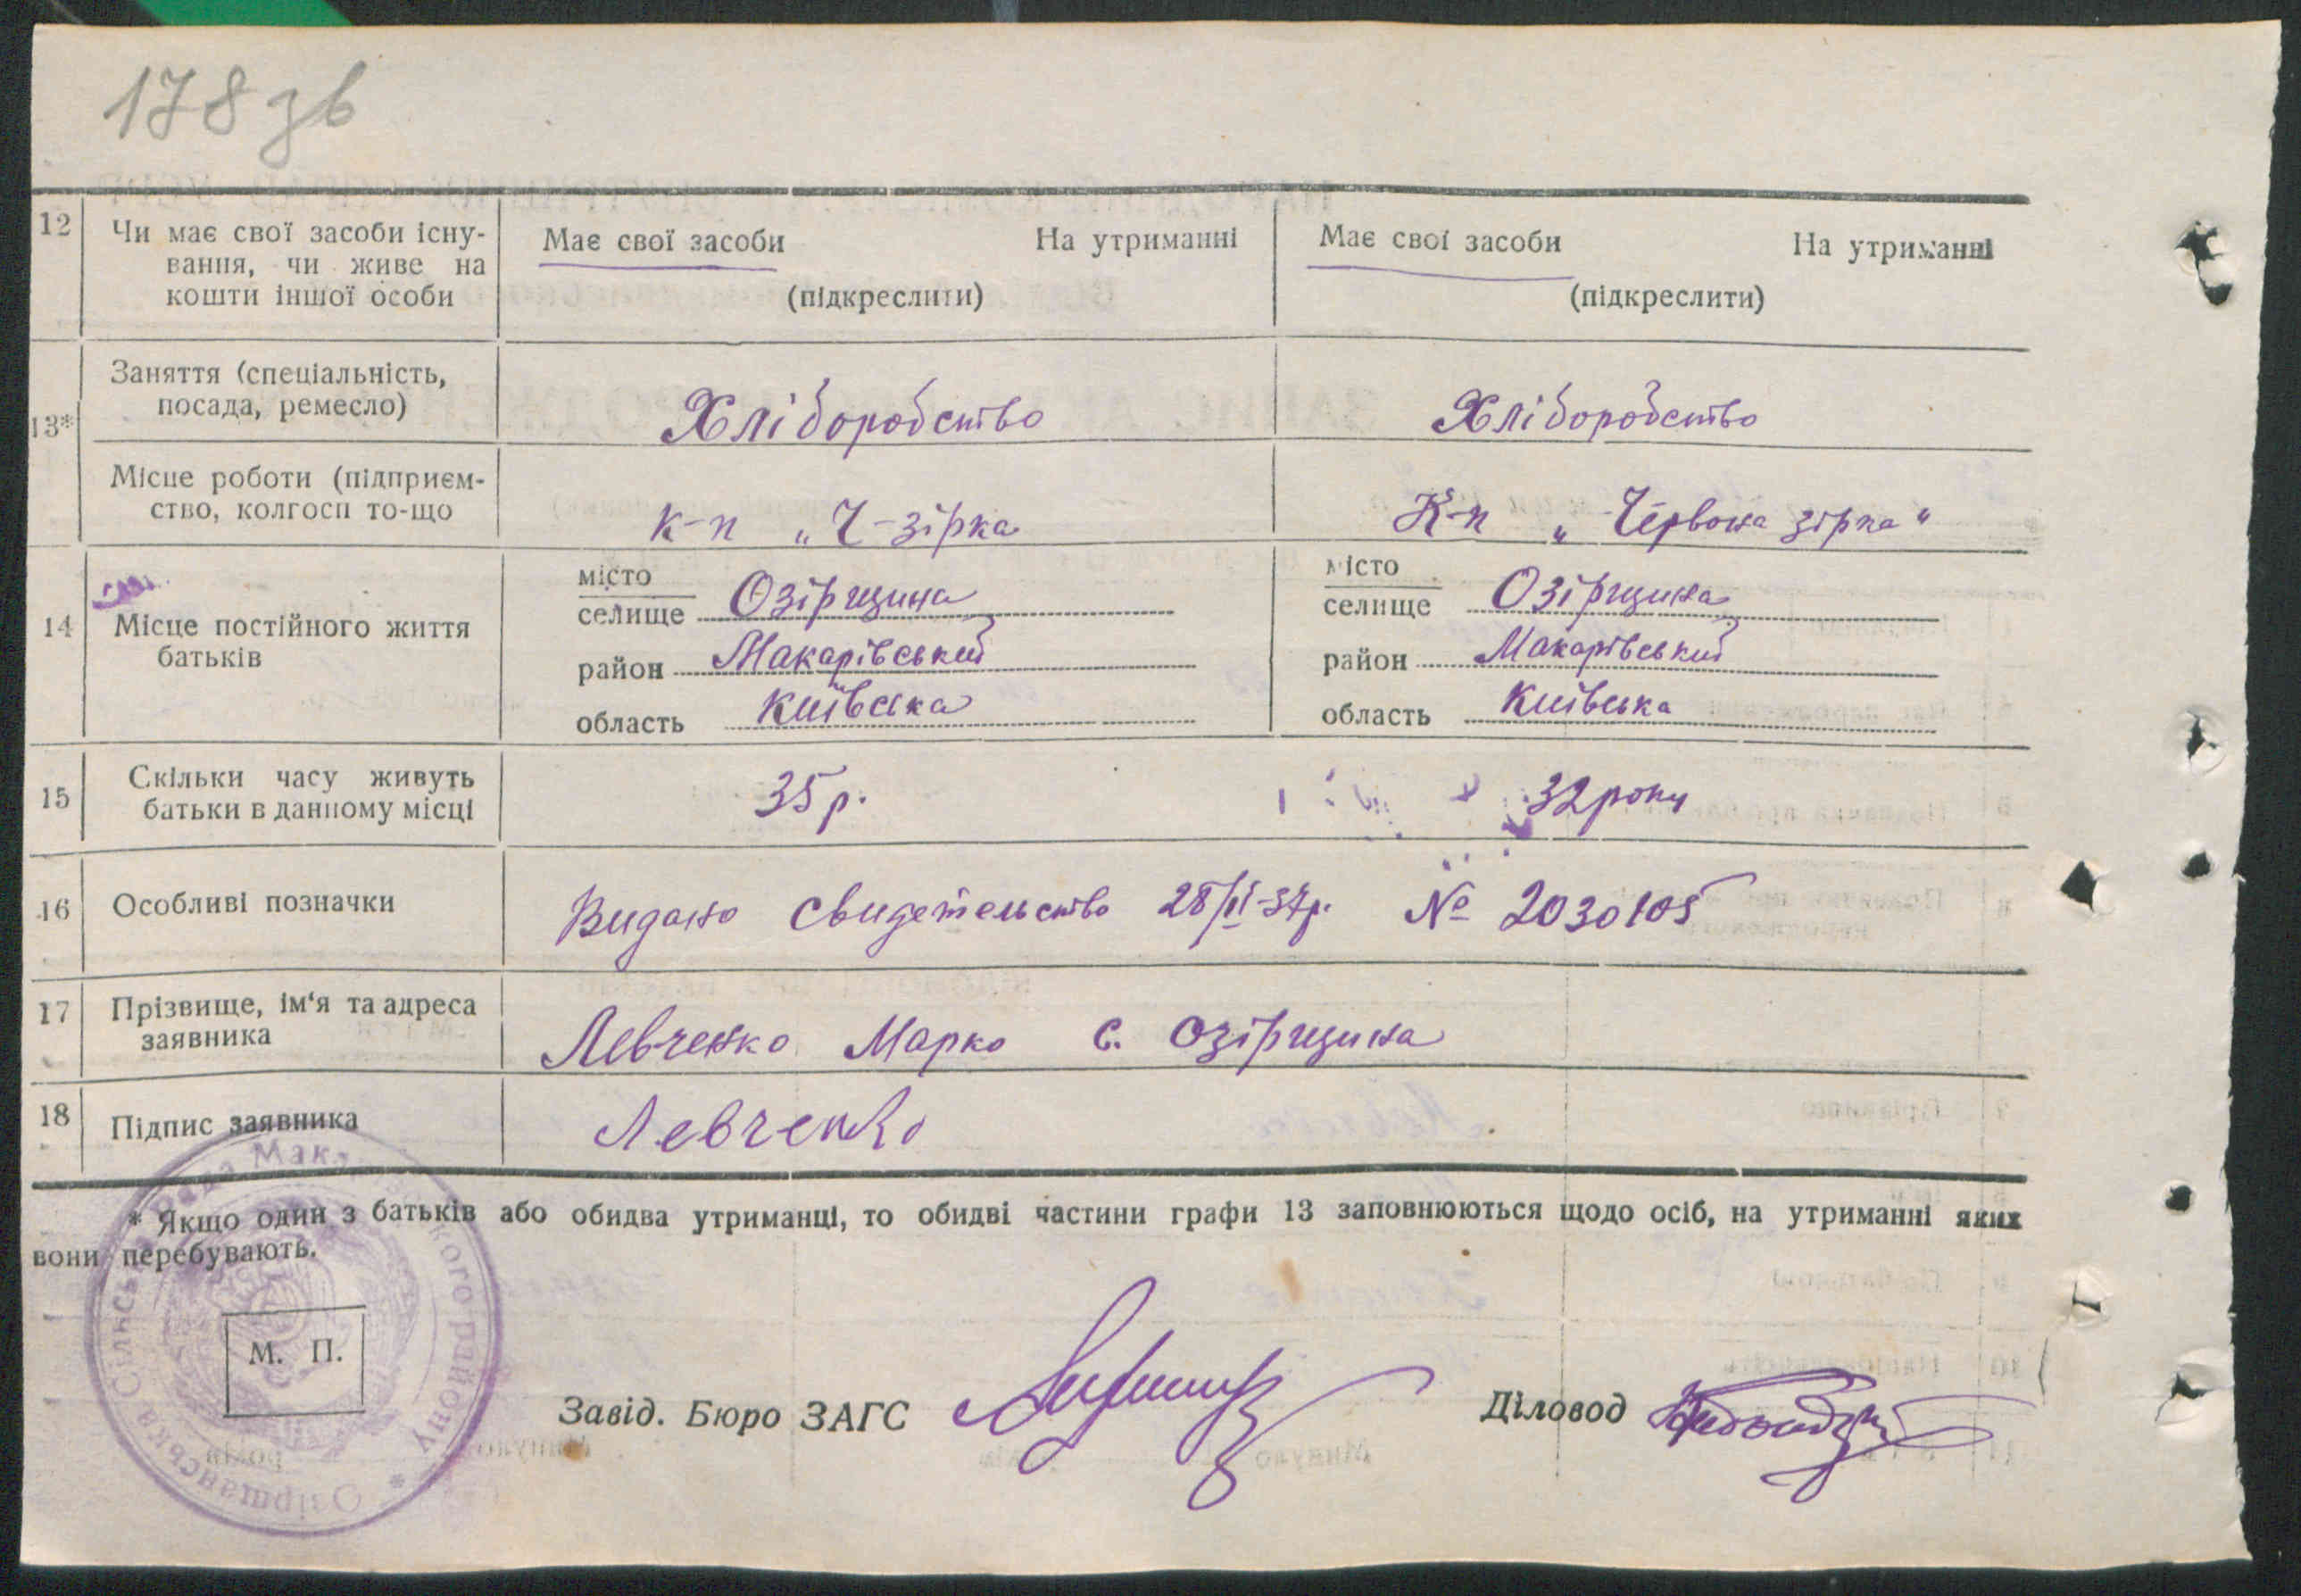 178 зв
12
Чи має свої засоби існу-
вання, чи живе на
кошти іншої особи
Має свої засоби На утриманні
(підкреслити)
Має свої засоби На утриманні
(підкреслити)
13*
Заняття (спеціальність,
посада, ремесло)
Хліборобство
Хліборобство
Місце роботи (підприєм-
ство, колгосп то-що
к-п „Ч-зірка
К-п „Червона зірка“
14
Місце постійного життя
батьків
місто
селище Озірщина
район Макарівський
область Київська
місто
селище Озірщина
район Макарівський
область Київська
15
Скільки часу живуть
батьки в данному місці
35 р.
32 роки
16
Особливі позначки
Видано свидетельство 28/II-37р. № 2030105
17
Прізвище, ім‘я та адреса
заявника
Левченко Марко с. Озірщина
18
Підпис заявника
Левченко
* Якщо один з батьків або обидва утриманці, то обидві частини графи 13 заповнюються щодо осіб, на утриманні яких
вони перебувають.
М. П.
Завід. Бюро ЗАГС
Діловод